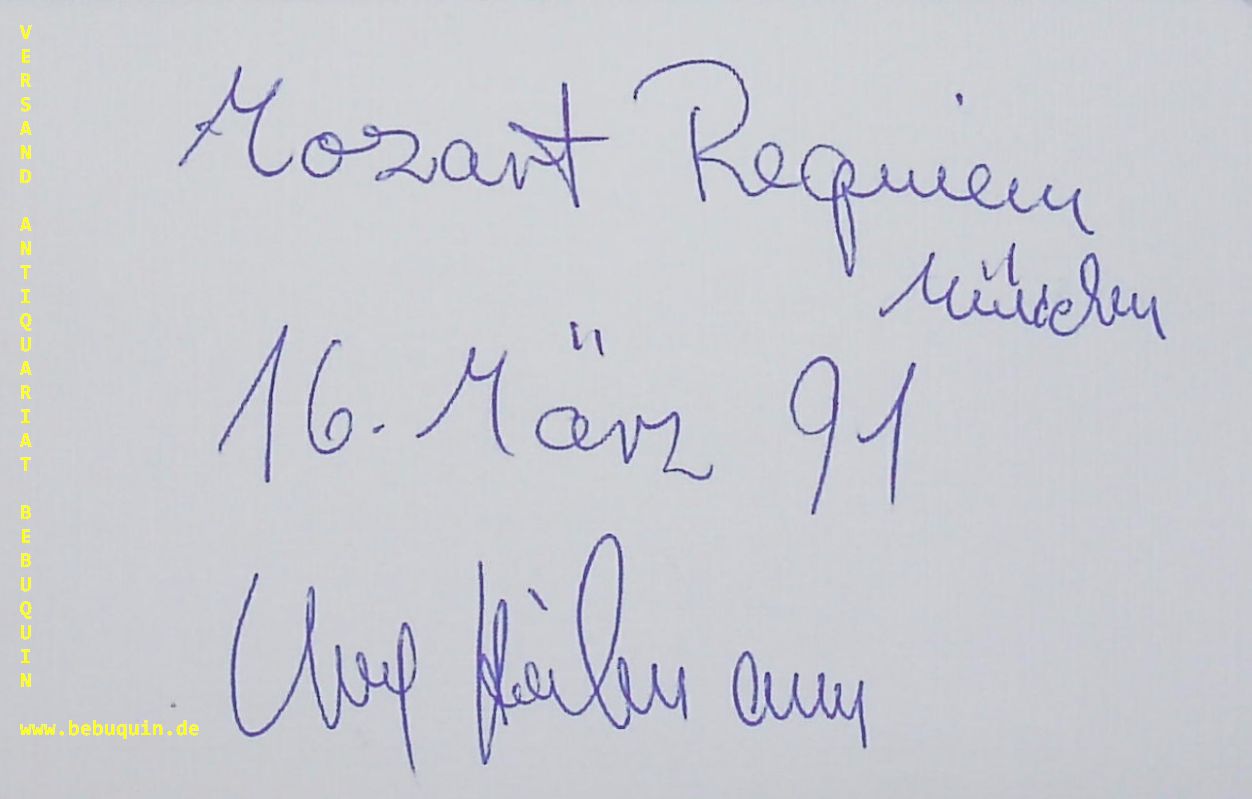 VERSAND ANTIQUARIAT BEBUQUIN
www.bebuquin.de
Mozart Requiem
München
16. März 91
Uwe Heilmann